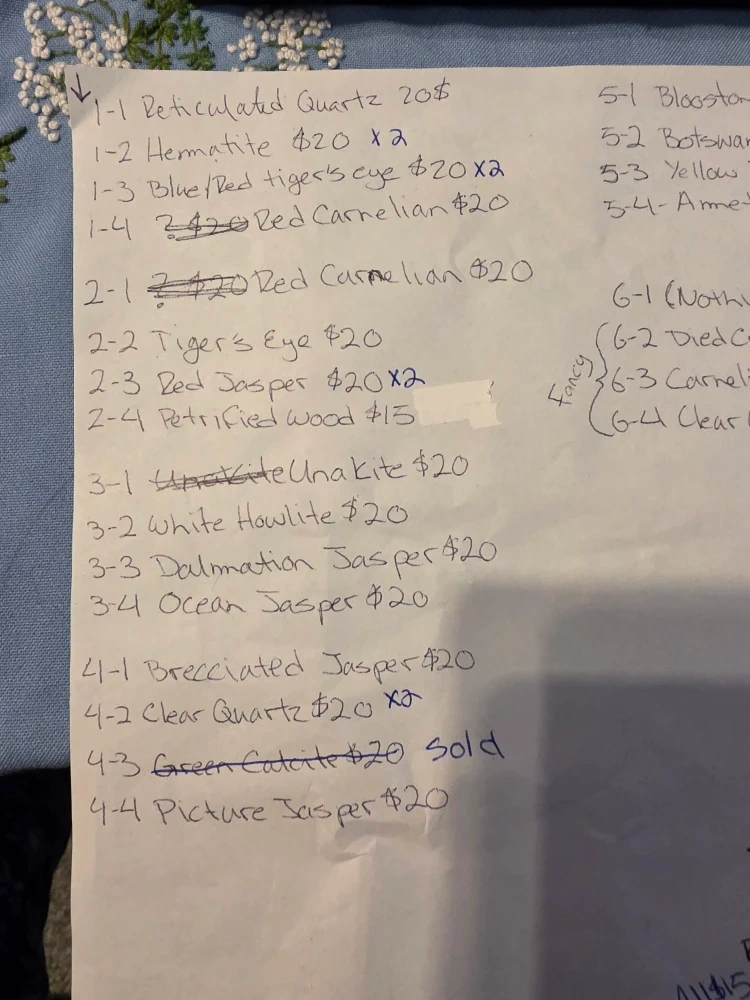 ↓
1-1 Reticulated Quartz 20$
1-2 Hermatite $20 x2
1-3 Blue/Red tiger's eye $20 x2
1-4 ? $20 Red Carnelian $20
2-1 ? $20 Red Carnelian $20
2-2 Tiger's Eye $20
2-3 Red Jasper $20 x2
2-4 Petrified wood $15
3-1 Unakite Unakite $20
3-2 White Howlite $20
3-3 Dalmation Jasper $20
3-4 Ocean Jasper $20
4-1 Brecciated Jasper $20
4-2 Clear Quartz $20 x2
4-3 Green Calcite $20 Sold
4-4 Picture Jasper $20
5-1
5-2
5-3 Yellow
5-4-
6-1
Fancy
6-2 Died
6-3
6-4 Clear
All $15